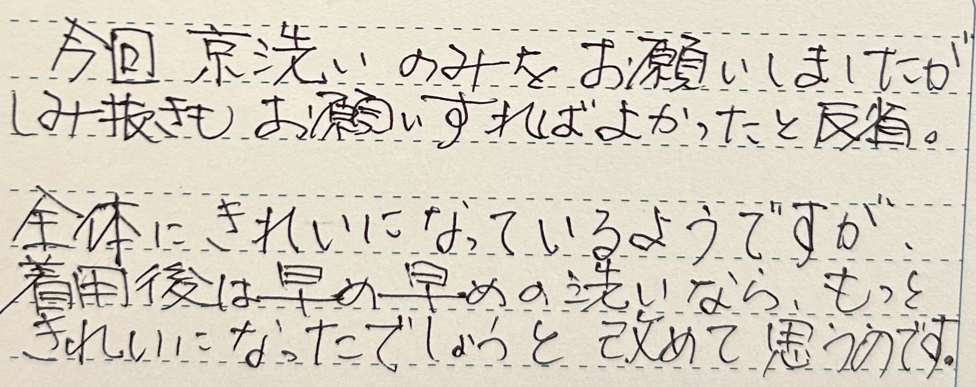 今回 京洗い のみを お願いしましたが
しみ抜きも お願いすればよかったと反省。
全体に きれいに なっているようですが、
着用後は早め早めの洗いなら、もっと
きれいに なったでしょうと 改めて思うのです。